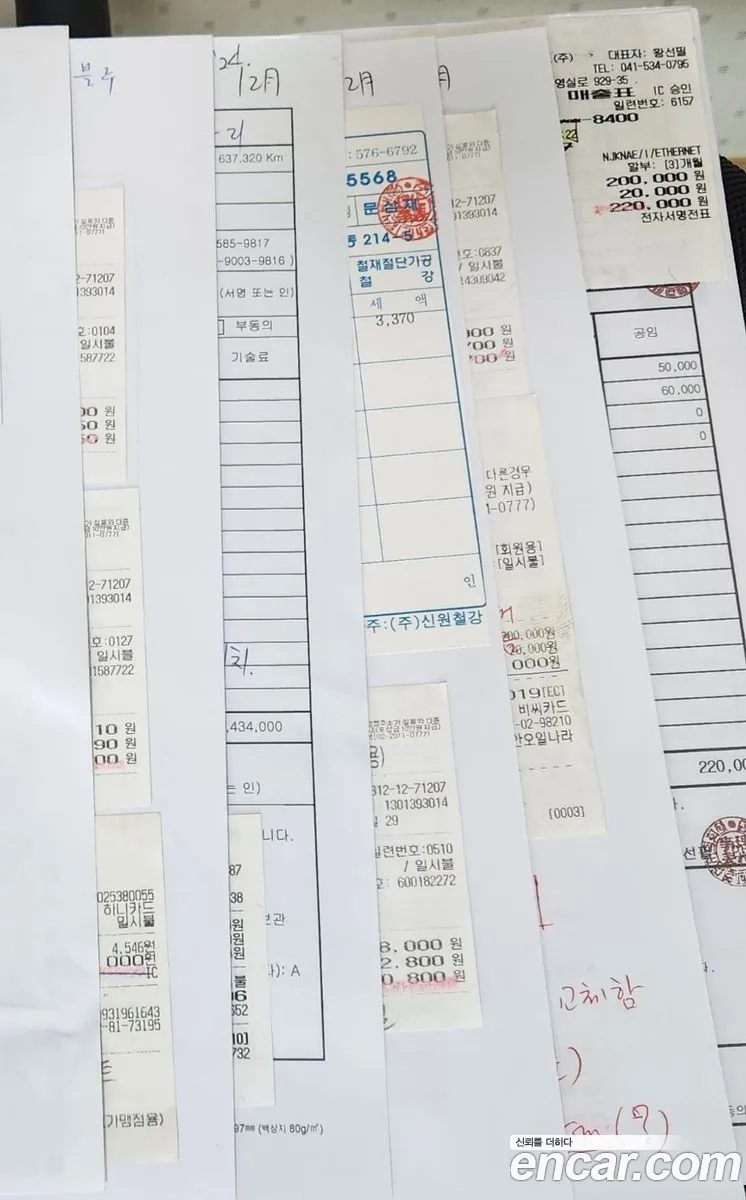 블루
'24.
12月
2月
月
637,320 Km
585-9817
-9003-9816 )
(서명 또는 인)
부동의
기술료
,434,000
는 인)
니다.
보관
): A
97㎜ (백상지 80g/㎡)
2-71207
1393014
호:0104
일시불
587722
00 원
50 원
50 원
2-71207
01393014
호:0127
일시불
1587722
10 원
90 원
00 원
025380055
하나카드
일시불
4,546원
000원
IC
931961643
-81-73195
(가맹점용)
87
38
원
원
원
불
06
652
10]
732
: 576-6792
5568
문상재
동 214-5
철재절단가공
철 강
세 액
3,370
인
주:(주)신원철강
312-12-71207
1301393014
일 29
일련번호:0510
/ 일시불
호: 600182272
8,000 원
2,800 원
0,800 원
12-71207
01393014
호:0837
/ 일시불
14309042
000 원
700 원
700 원
다른경우
원 지급)
1-0777)
[회원용]
[일시불]
200,000원
20,000원
000원
019[EC]
비씨카드
-02-98210
안오일나라
[0003]
교체함
(주)
대표자: 왕선필
TEL: 041-534-0795
영실로 929-35
매출표 IC 승인
일련번호: 6157
-8400
NJKNAE/I/ETHERNET
할부: [3]개월
200,000 원
20,000 원
220,000 원
전자서명전표
공임
50,000
60,000
0
0
220,00
선필
신뢰를 더하다
encar.com